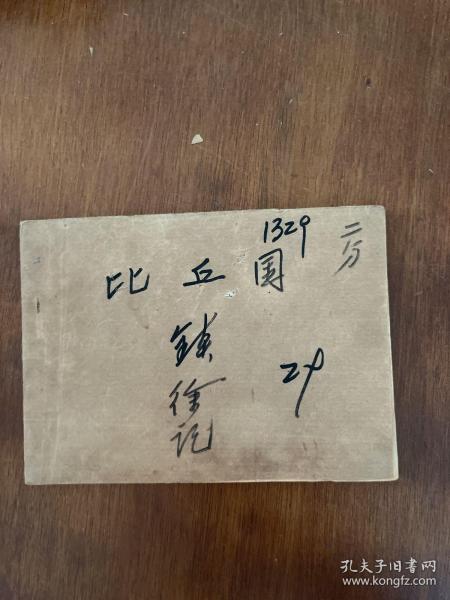 1329
二分
比丘国
镇
徐记
24
孔夫子旧书网
www.kongfz.com